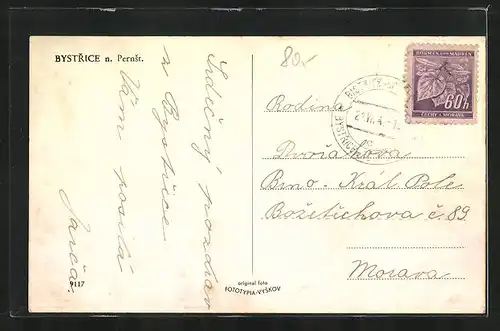 BYSTŘICE n. Pernšt.
80,-
Srdečný pozdrav
z Bystřice
Vám posílá
Jarča.
9117
original foto
FOTOTYPIA-VYŠKOV
BÖHMEN UND MÄHREN
60h
ČECHY A MORAVA
Rodina
Dvořákova
Brno - Král Pole
Božetěchova č. 89
Morava